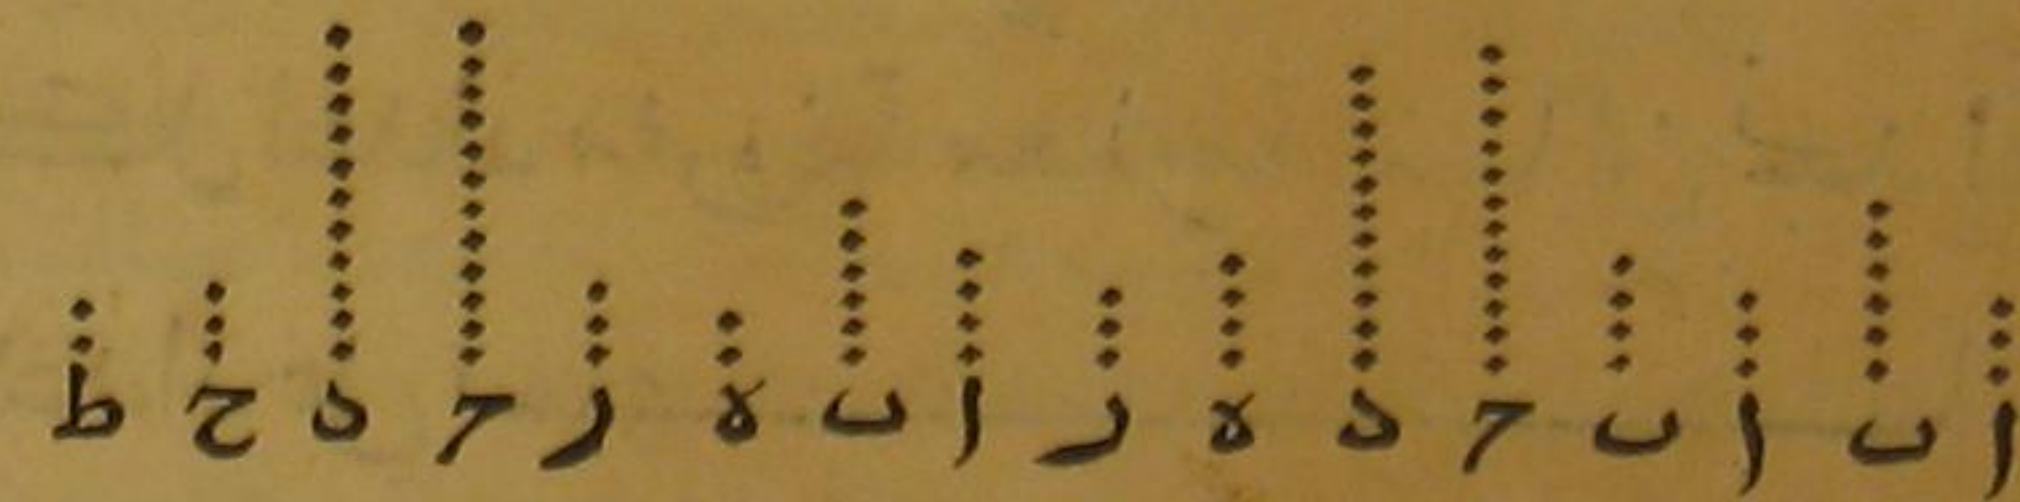 ا ب ا ب ج د ه ز ا ب ه ز ج د ح ط